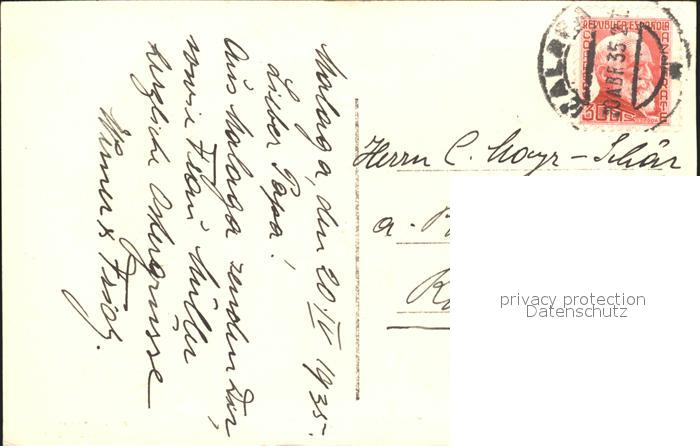 Malaga, den 20. IV 1935.
Lieber Papa!
Aus Malaga senden Dir,
sowie Frau Müller
herzliche Ostergrüsse
Werner &
Herrn C. Mayr-Schär
a.
REPUBLICA ESPAÑOLA
30 CTS
MALAGA
20 ABR 35
privacy protection
Datenschutz